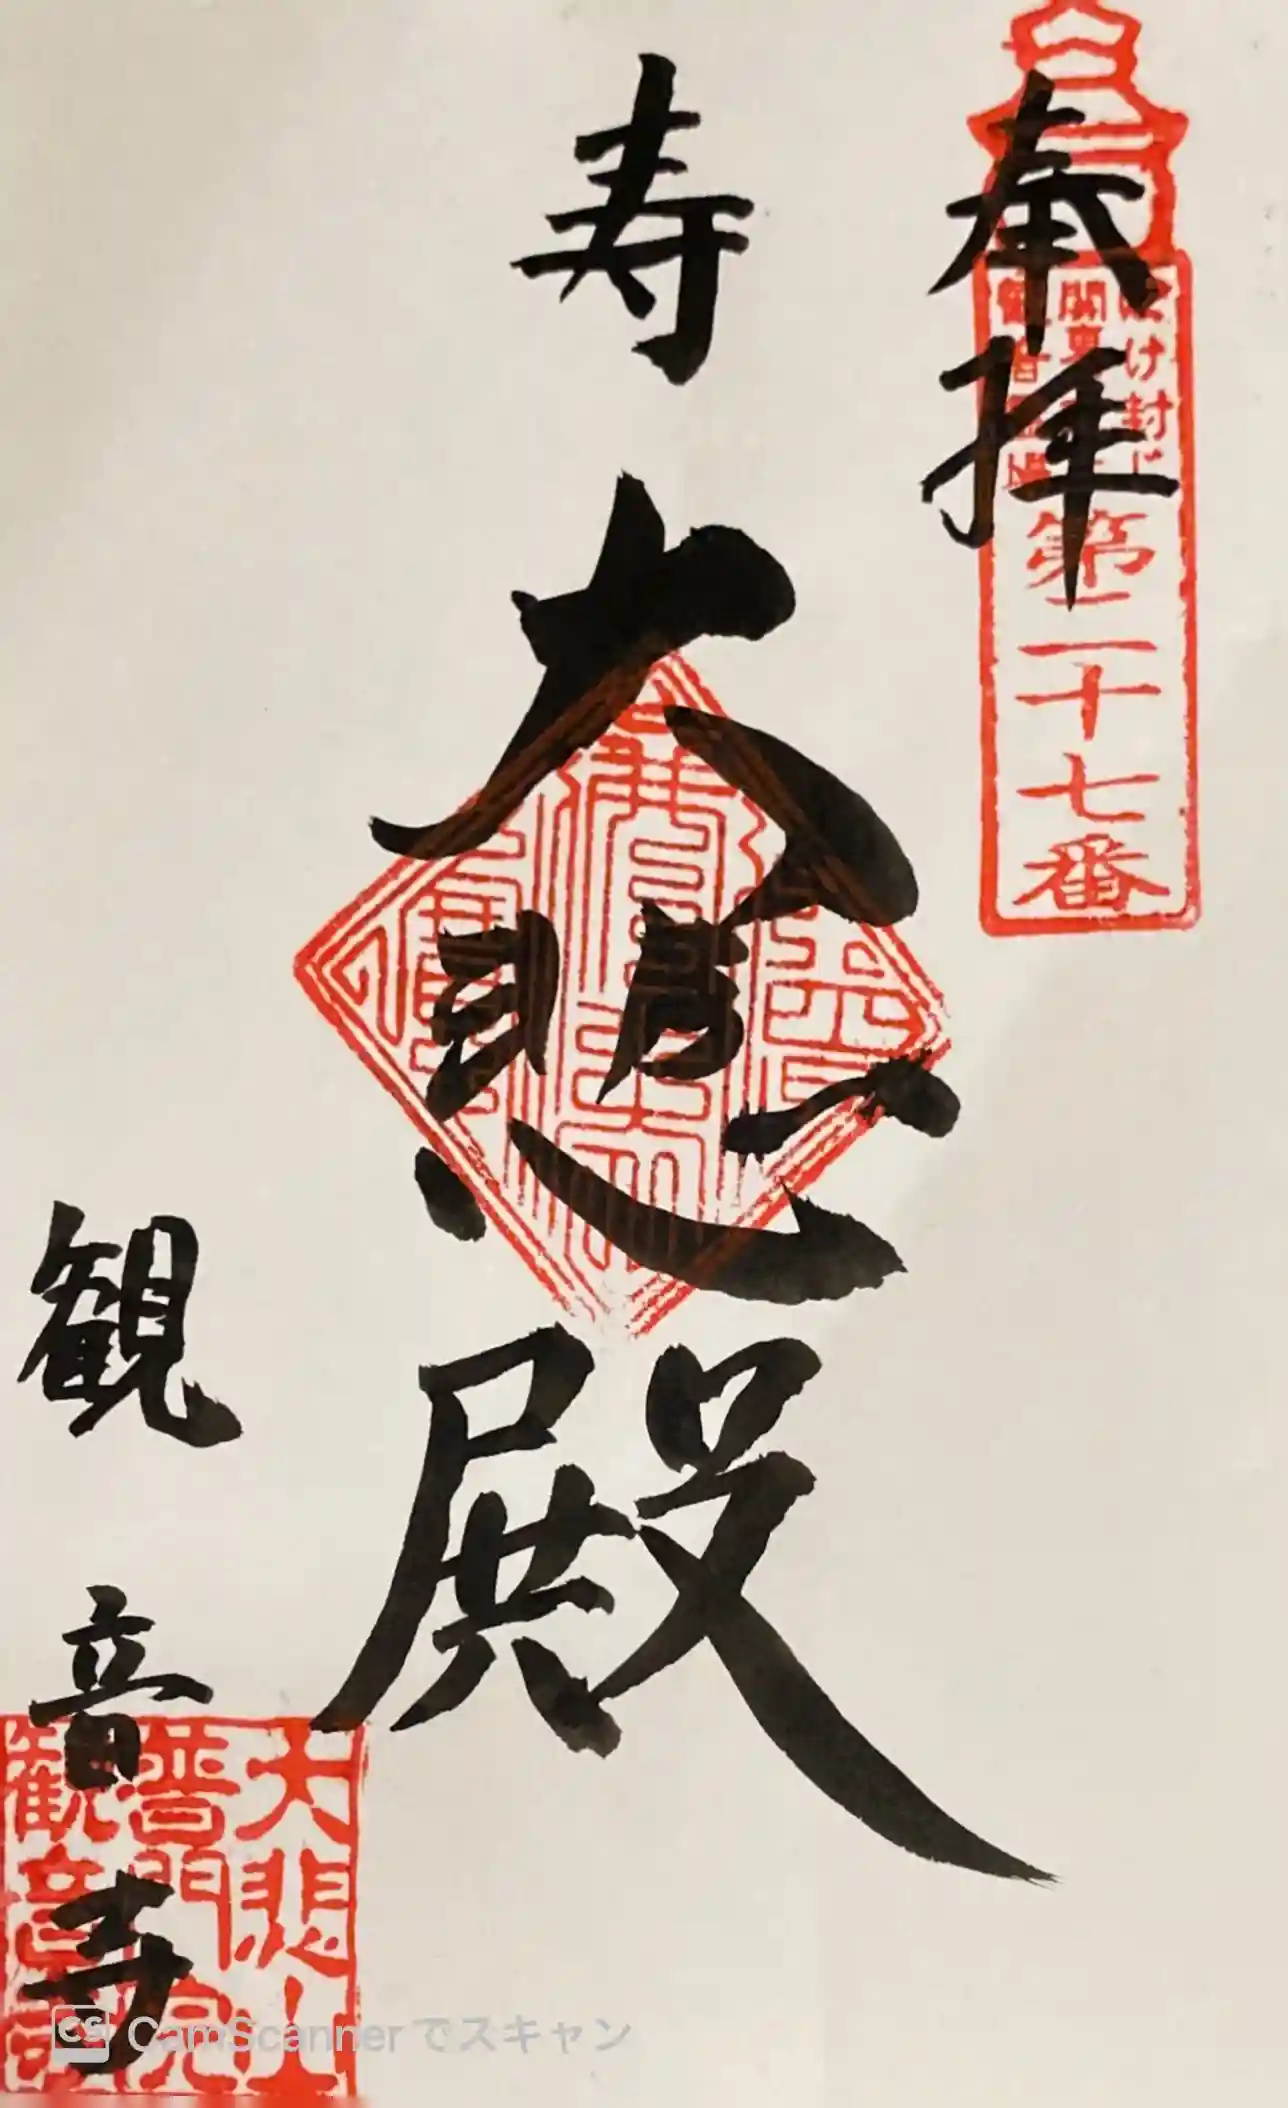 奉拝
ぼけ封じ
関東
観音霊場
第二十七番
寿
大悲殿
観音寺
大悲山
普門院
観音寺
CS CamScanner でスキャン